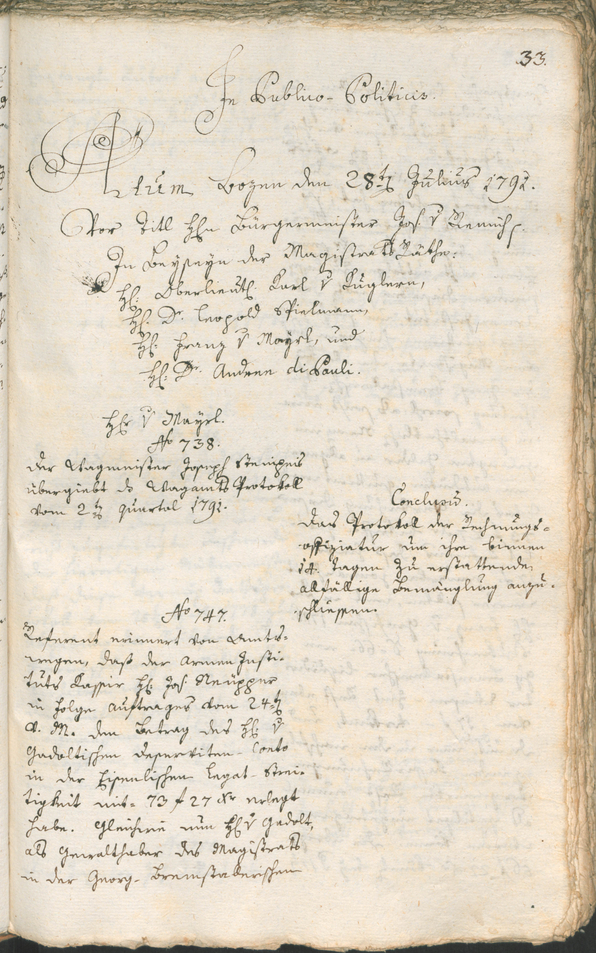 33.
In Publico-Politicis.
Actum Bozen den 28t Julius 1792.
Vor Titl Hℓn Bürgermeister Jos. v Remich
In Beyseyn der Magistrats Räthe.
Hℓ. Oberlieut. Karl v Kuglern,
Hℓ. Dr. Leopold Spielmann,
Hℓ. Franz v Mayrl, und
Hℓ. Dr. Andree di Pauli.
Hℓr v Mayrl.
No 738.
Der Wagmeister Joseph Stampis
übergiebt das Wagamts Protokoll
vom 2t Quartal 1792.
Conclusū.
Das Protokoll der Rechnungs-
offiziatur um ihre binnen
14 Tagen zu erstattende
allfällige Bemänglung anzu-
schliessen.
No 747.
Referent erinnert von Amts-
wegen, daß der Armen Insti-
tuts Kassier Hℓ Jos. Neupper
in Folge Auftrages vom 24t
v. M. den Betrag des Hℓ v
Gedoltischen Deserviten-Conto
in der Eisenlischen Legat-Strei-
tigkeit mit- 73 f 27 xr erlegt
habe. Gleichwie nun Hℓ v Gedolt,
als Gewalthaber des Magistrats
in der Georg-Bremstalerischen